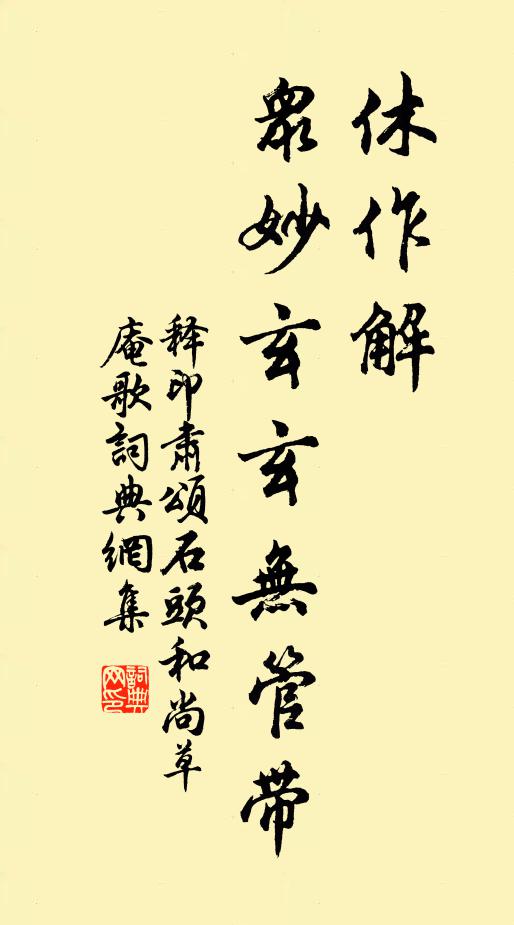 休作解
眾妙玄玄無管带
释印肅頌石頭和尚草
庵歌詞典網集
詞典
网印